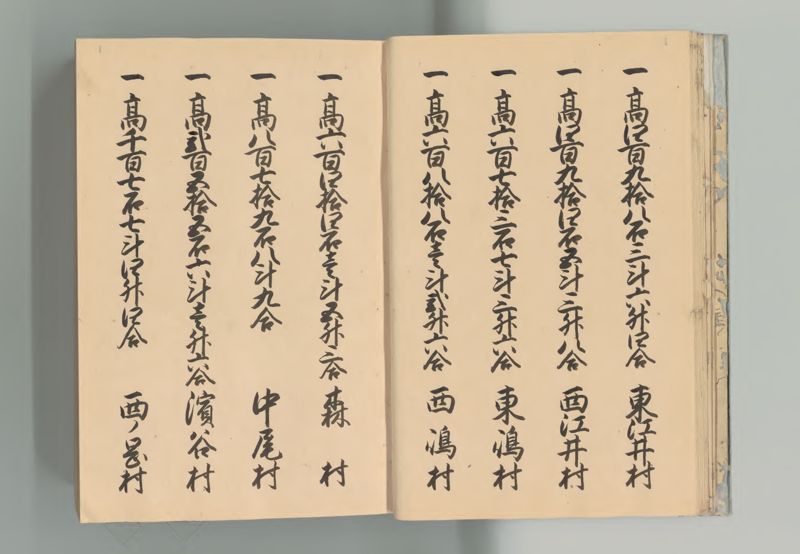 一 高四百九拾八石三斗六升四合 東江井村
一 高四百九拾四石五斗二升八合 西江井村
一 高六百七拾二石七斗二升六合 東鴻村
一 高六百八拾八石壱斗弐升六合 西鴻村
一 高六百四拾四石壱斗五升二合 森村
一 高八百七拾九石八斗九合 中尾村
一 高弐百五拾五石六斗壱升六合 濱谷村
一 高千百七石七斗四升四合 西ノ 村